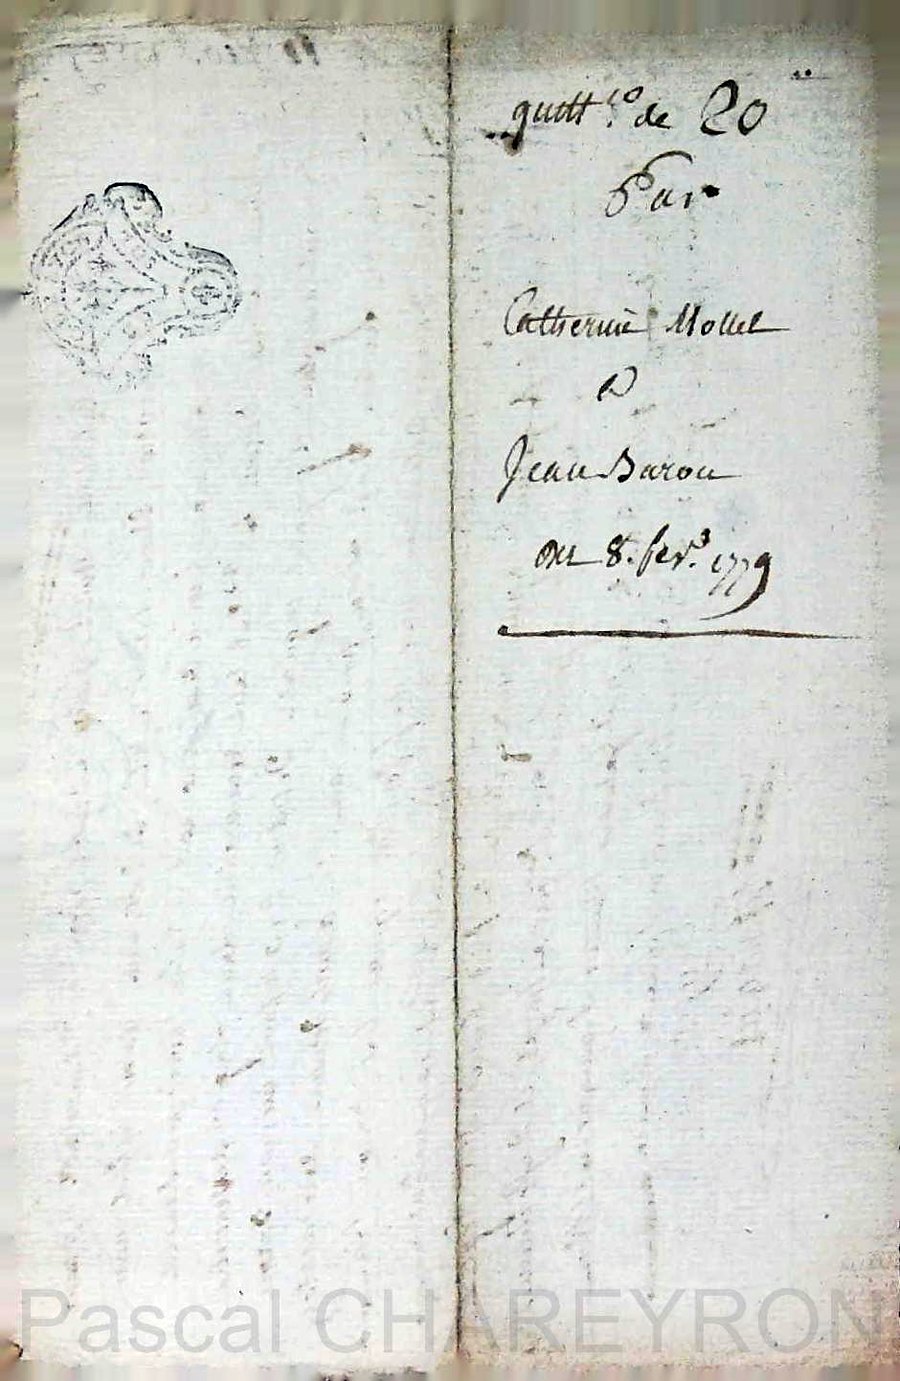 quitt.ce de 20
Par
Catherine Mollet
A
Jean Barou
du 8. fev.r 1779
Pascal CHAREYRON